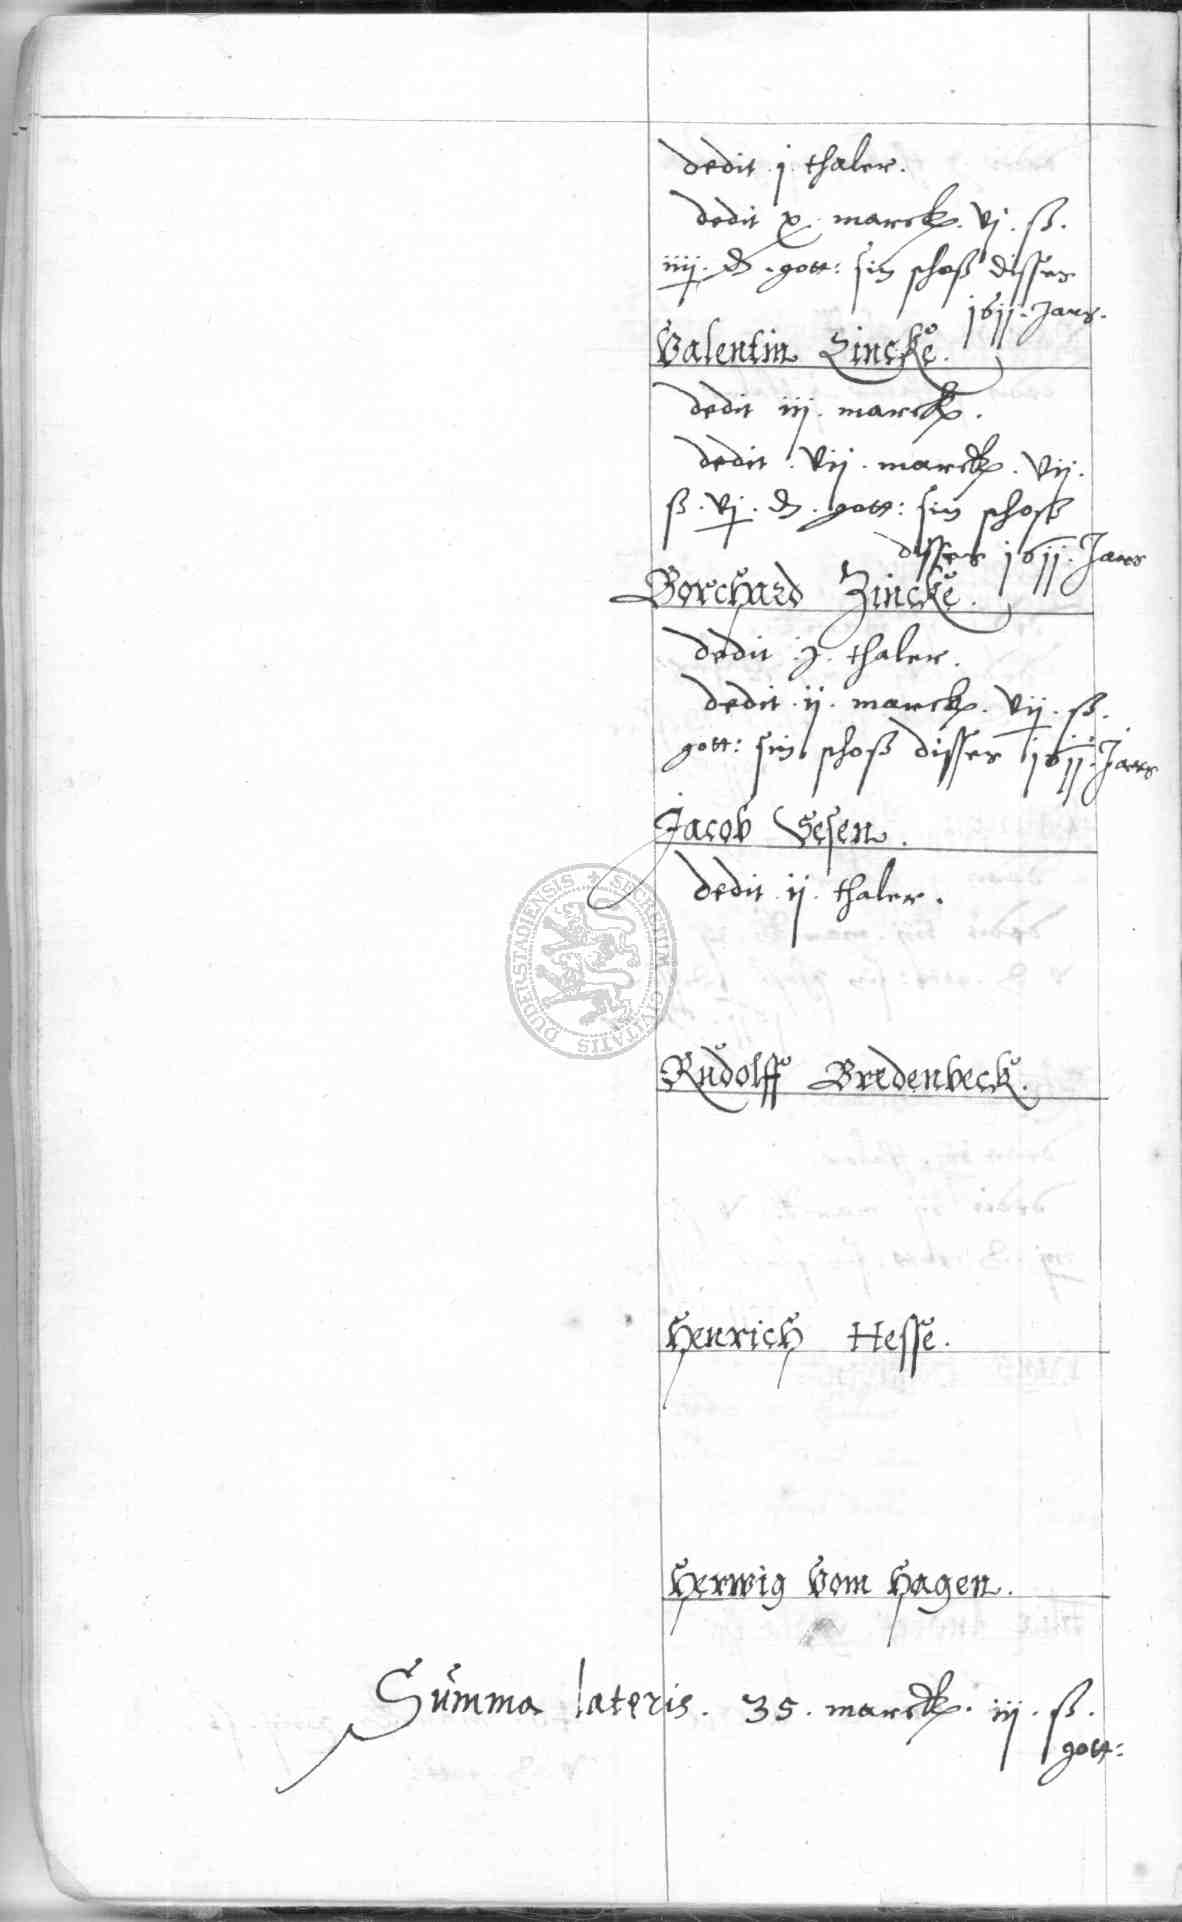 dedit .j. thaler.
dedit x. marck. vj. ß.
iiij. ₰. gott: sin schoß disser
1611. Jars.
Valentin Zincke.
dedit iij. marck.
dedit . vij . marck . vij.
ß . vj . ₰ . gott: sin schoß
disser 1611. Jars
Borchard Zincke.
dedit .j. thaler.
dedit .ij. marck. vij. ß.
gott: sin schoß disser 1611. Jars
Jacob Gesen.
dedit .ij. thaler.
SECRETUM CIVITATIS DUDERSTADIENSIS
Rudolff Bredenbeck.
Henrich Hesse.
Herwig Vom Hagen.
Summa lateris. 35. marck. iij. ß.
gott: